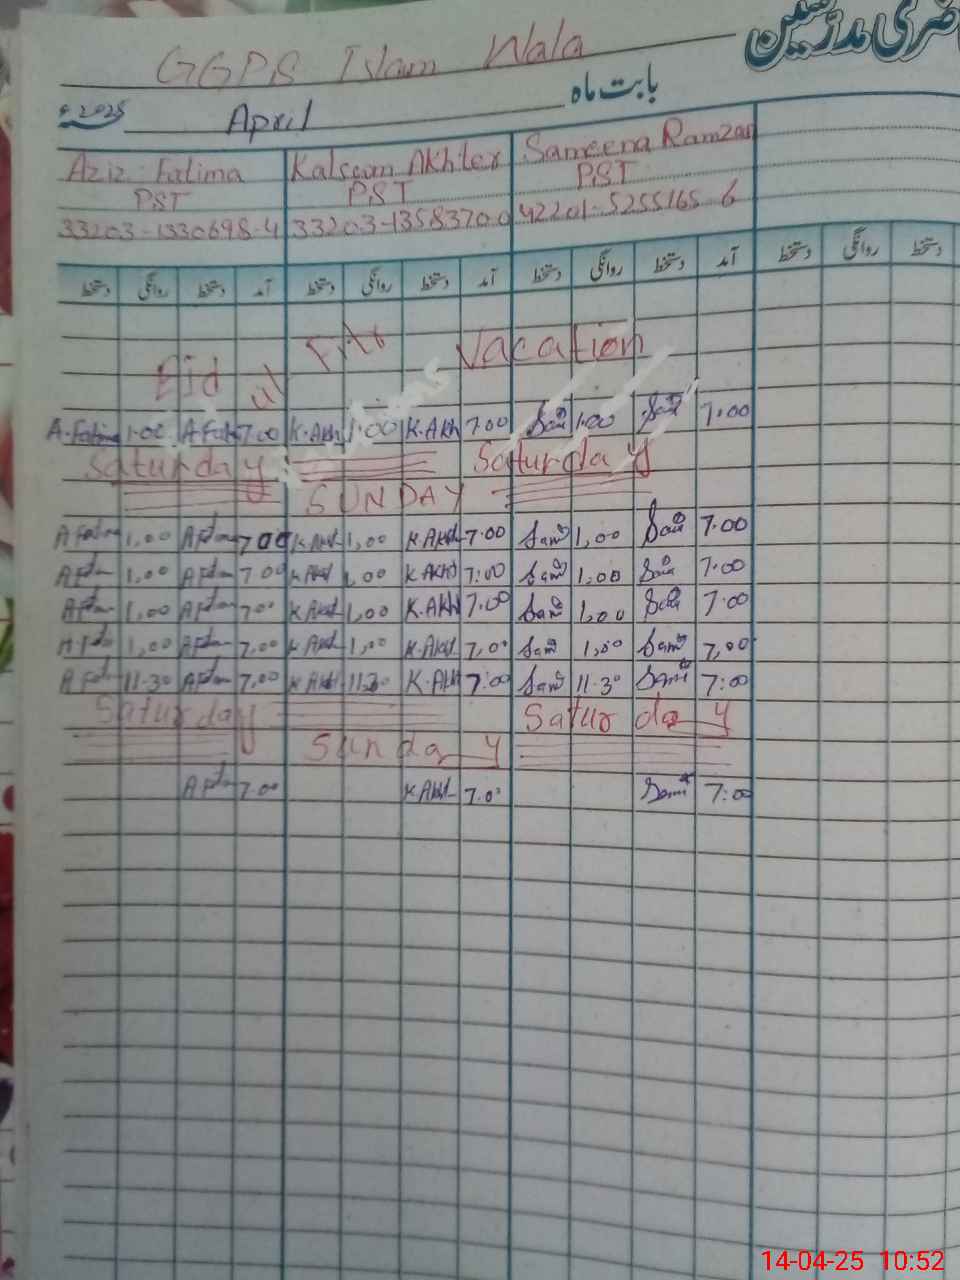 ضری مدرسین
GGPS Islam Wala
بابت ماہ
April
2025ء
Aziz Fatima Kalsoom Akhter Sameena Ramzan
PST PST PST
33203-1330698-4 33203-1358370-0 42201-5255165-6
دستخط روانگی دستخط آمد دستخط روانگی دستخط آمد دستخط روانگی دستخط آمد دستخط روانگی دستخط
Eid ul Fitr Vacation
A.Fatima 1.00 A.Fati 7.00 K.Akh 1.00 K.AKh 7.00 Sam 1.00 Sam 7.00
Saturday Saturday
SUNDAY
A Fatima 1,00 A Ftm 7.00 K.AKd 1,00 K.AKd 7.00 Sam 1,00 Sam 7.00
A Ftm 1,00 A Ftm 7.00 K.AKd 1,00 K AKhd 7:00 Sam 1,00 Sam 7.00
A Ftm 1,00 A Ftm 7.0 K.AKd 1,00 K.AKh 7.00 Sam 1,00 Sam 7.00
A Ftm 1,00 A Ftm 7,00 K.AKd 1,00 K.AKd 7,00 Sam 1,00 Sam 7,00
A Fatm 11.30 A Ftm 7,00 K.AKd 11.30 K.AKd 7:00 Sam 11.30 Sami 7:00
Saturday Saturday
Sunday
A Ftm 7.00 K.AKd 7.0 Sami 7:00
14-04-25 10:52